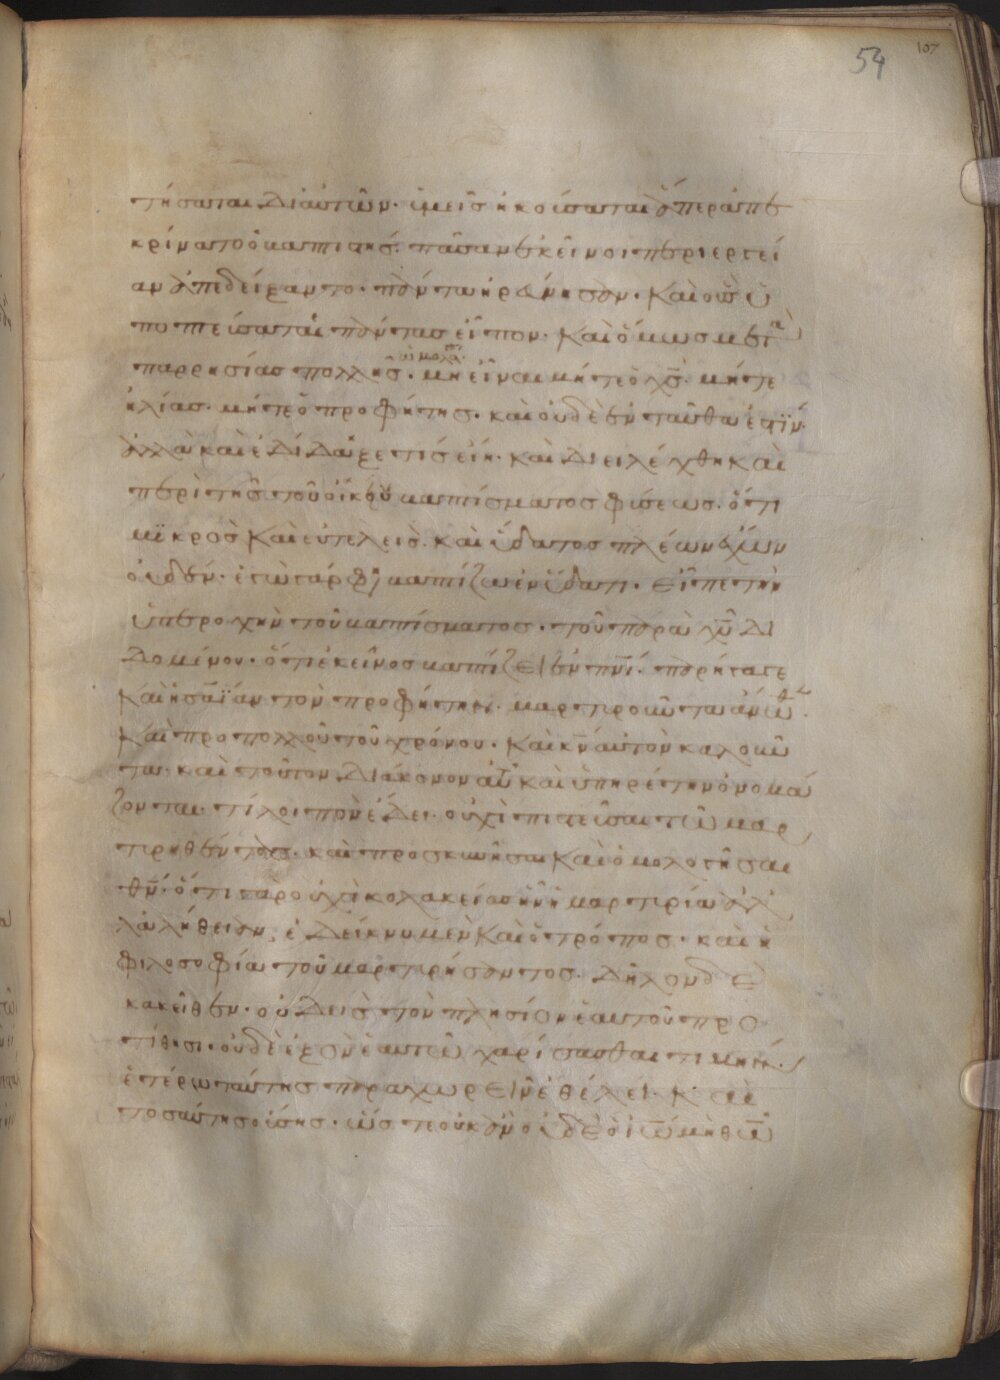 τήσαται διαυτῶν· ὑμεῖς ἠκούσαται ἅπερ ἀπε
κρίνατο ὁ βαπτιστής· πᾶσαν ἐκεῖνοι περιεργεί
αν ἐπεδείξαντο· πάντα ἠρώτησαν· καὶ οὓς ὑ
ποπτεύσαται πάντας εἶπον· καὶ ὅμως μετὰ
παρρησίας πολλῆς· ὡμολόγ μὴ εἶναι μήτε ὁ χς· μήτε
ἠλίας· μήτε ὁ προφήτης· καὶ οὐδὲ ἐνταῦθα ἔστην·
ἀλλὰ καὶ ἐδίδαξε τίς εἴη· καὶ διειλέχθη καὶ
περὶ τῆς τοῦ οἰκείου βαπτίσματος φύσεως· ὅτι
μϊκρὸς καὶ εὐτελεὶς· καὶ ὕδατος πλέων ἔχων
οὐδέν· ἐγὼ γάρ φη βαπτίζω ἐν ὕδατι· εἶπε τὴν
ὑπεροχὴν τοῦ βαπτίσματος· τοῦ παρὰ χῦ δι
δομένου· ὅτι ἐκεῖνος βαπτίζει ἐν πνι· παρήγαγε
καὶ ἡσαΐαν τὸν προφήτην· μαρτυροῦντα ἄνωθ·
καὶ πρὸ πολλοῦ τοῦ χρόνου· καὶ κν αὐτὸν καλοῦν
τα· καὶ τοῦτον διάκονον αὐτ καὶ ὑπηρέτην ὀνομά
ζονται· τί λοιπὸν ἔδει· οὐχὶ πιστεῦσαι τῶ μαρ
τυρηθέντος· καὶ προσκυνῆσαι καὶ ὁμολογῆσαι
θν· ὅτι γὰρ οὐχὶ κολακείας ἦν ἡ μαρτυρία ἀλ
λἀληθείας, ἐδείκνυ μὲν καὶ ὁ τρόπος· καὶ ἡ
φιλοσοφία τοῦ μαρτυρήσαντος· δῆλον δε
κακεῖθεν· οὐδεὶς τὸν πλησίον ἑαυτοῦ προ
τίθησι· οὐδὲ ἐξὸν ἑαυτῶ χαρίσασθαι τιμήν·
ἑτέρω ταύτης παραχωρεῖν ἐθέλει· καὶ
τοσαύτης οὔσης· ὥστε οὐκ ἂν οὐδὲ ὁ ἰω μὴ